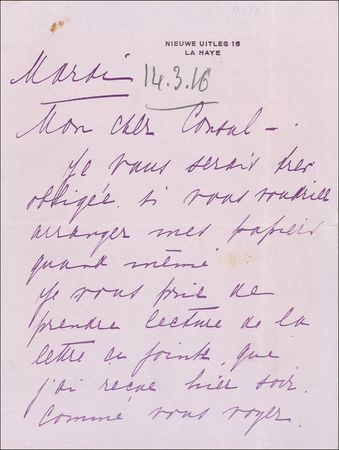 NIEUWE UITLEG 16
LA HAYE
Mardi
14.3.16
Mon cher Consul —.
Je vous serais très
obligée si vous voudriez
arranger mes papiers
quand même
Je vous prie de
prendre lecture de la
lettre ci jointe que
j'ai reçue hier soir.
Comme vous voyez.